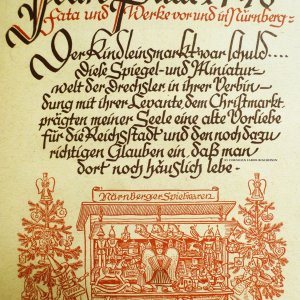 Fata und Werke vor und in Nürnberg-
Der Kindleinsmarkt war schuld....
Diese Spiegel- und Miniatur-
welt der Drechsler, in ihrer Verbin-
dung mit ihrer Levante dem Christmarkt
prägten meiner Seele eine alte Vorliebe
für die Reichstadt und den noch dazu
richtigen Glauben ein, daß man
dort noch häuslich lebe-
Nürnberger Spielwaren